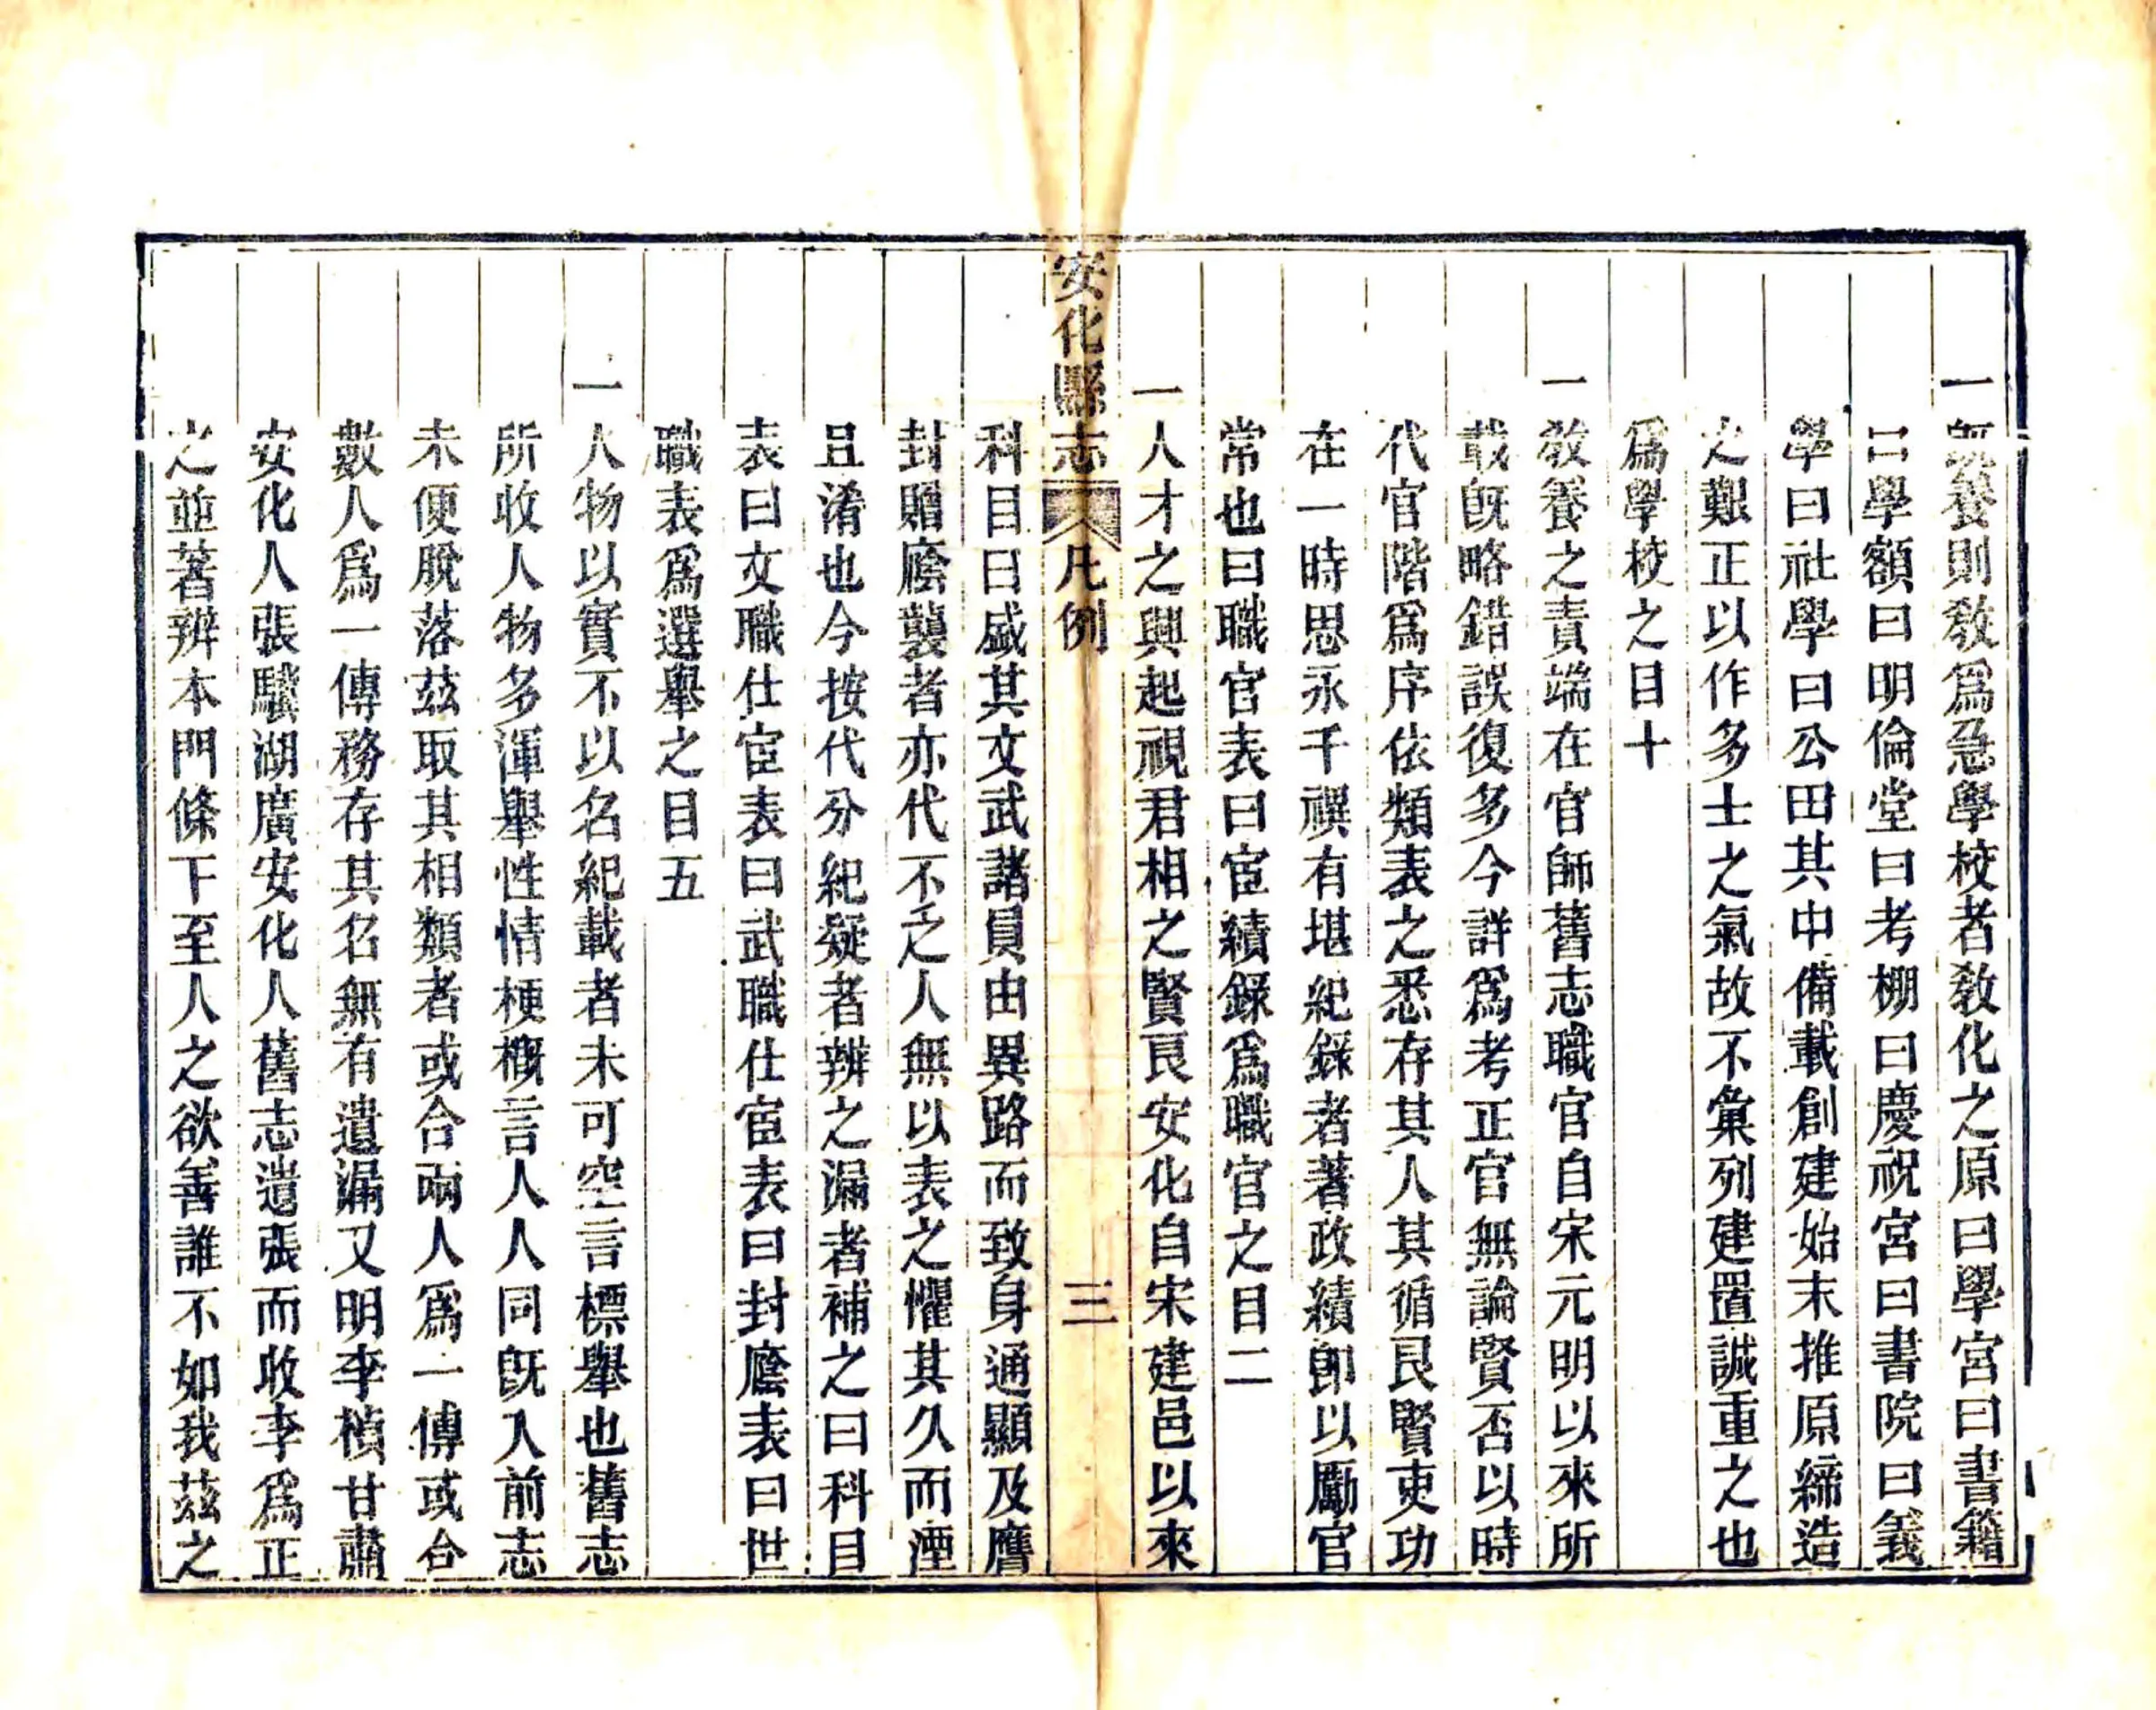 一旣養則敎爲急學校者敎化之原曰學宮曰書籍
曰學額曰明倫堂曰考棚曰慶祝宮曰書院曰義
學曰社學曰公田其中備載創建始末推原締造
之艱正以作多士之氣故不彙列建置誠重之也
爲學校之目十
一敎養之責端在官師舊志職官自宋元明以來所
載旣略錯誤復多今詳爲考正官無論賢否以時
代官階爲序依類表之悉存其人其循良賢吏功
在一時思永千禩有堪紀錄者著政績卽以勵官
常也曰職官表曰宦績錄爲職官之目二
一人才之興起視君相之賢良安化自宋建邑以來
安化縣志 凡例 三
科目曰盛其文武諸員由異路而致身通顯及膺
封贈廕襲者亦代不乏人無以表之懼其久而湮
且淆也今按代分紀疑者辨之漏者補之曰科目
表曰文職仕宦表曰武職仕宦表曰封廕表曰世
職表爲選舉之目五
一人物以實不以名紀載者未可空言標舉也舊志
所收人物多渾舉性情梗槪言人人同旣入前志
未便脫落茲取其相類者或合兩人爲一傳或合
數人爲一傳務存其名無有遺漏又明李楨甘肅
安化人張驥湖廣安化人舊志遺張而收李爲正
之並著辨本門條下至人之欲善誰不如我茲之